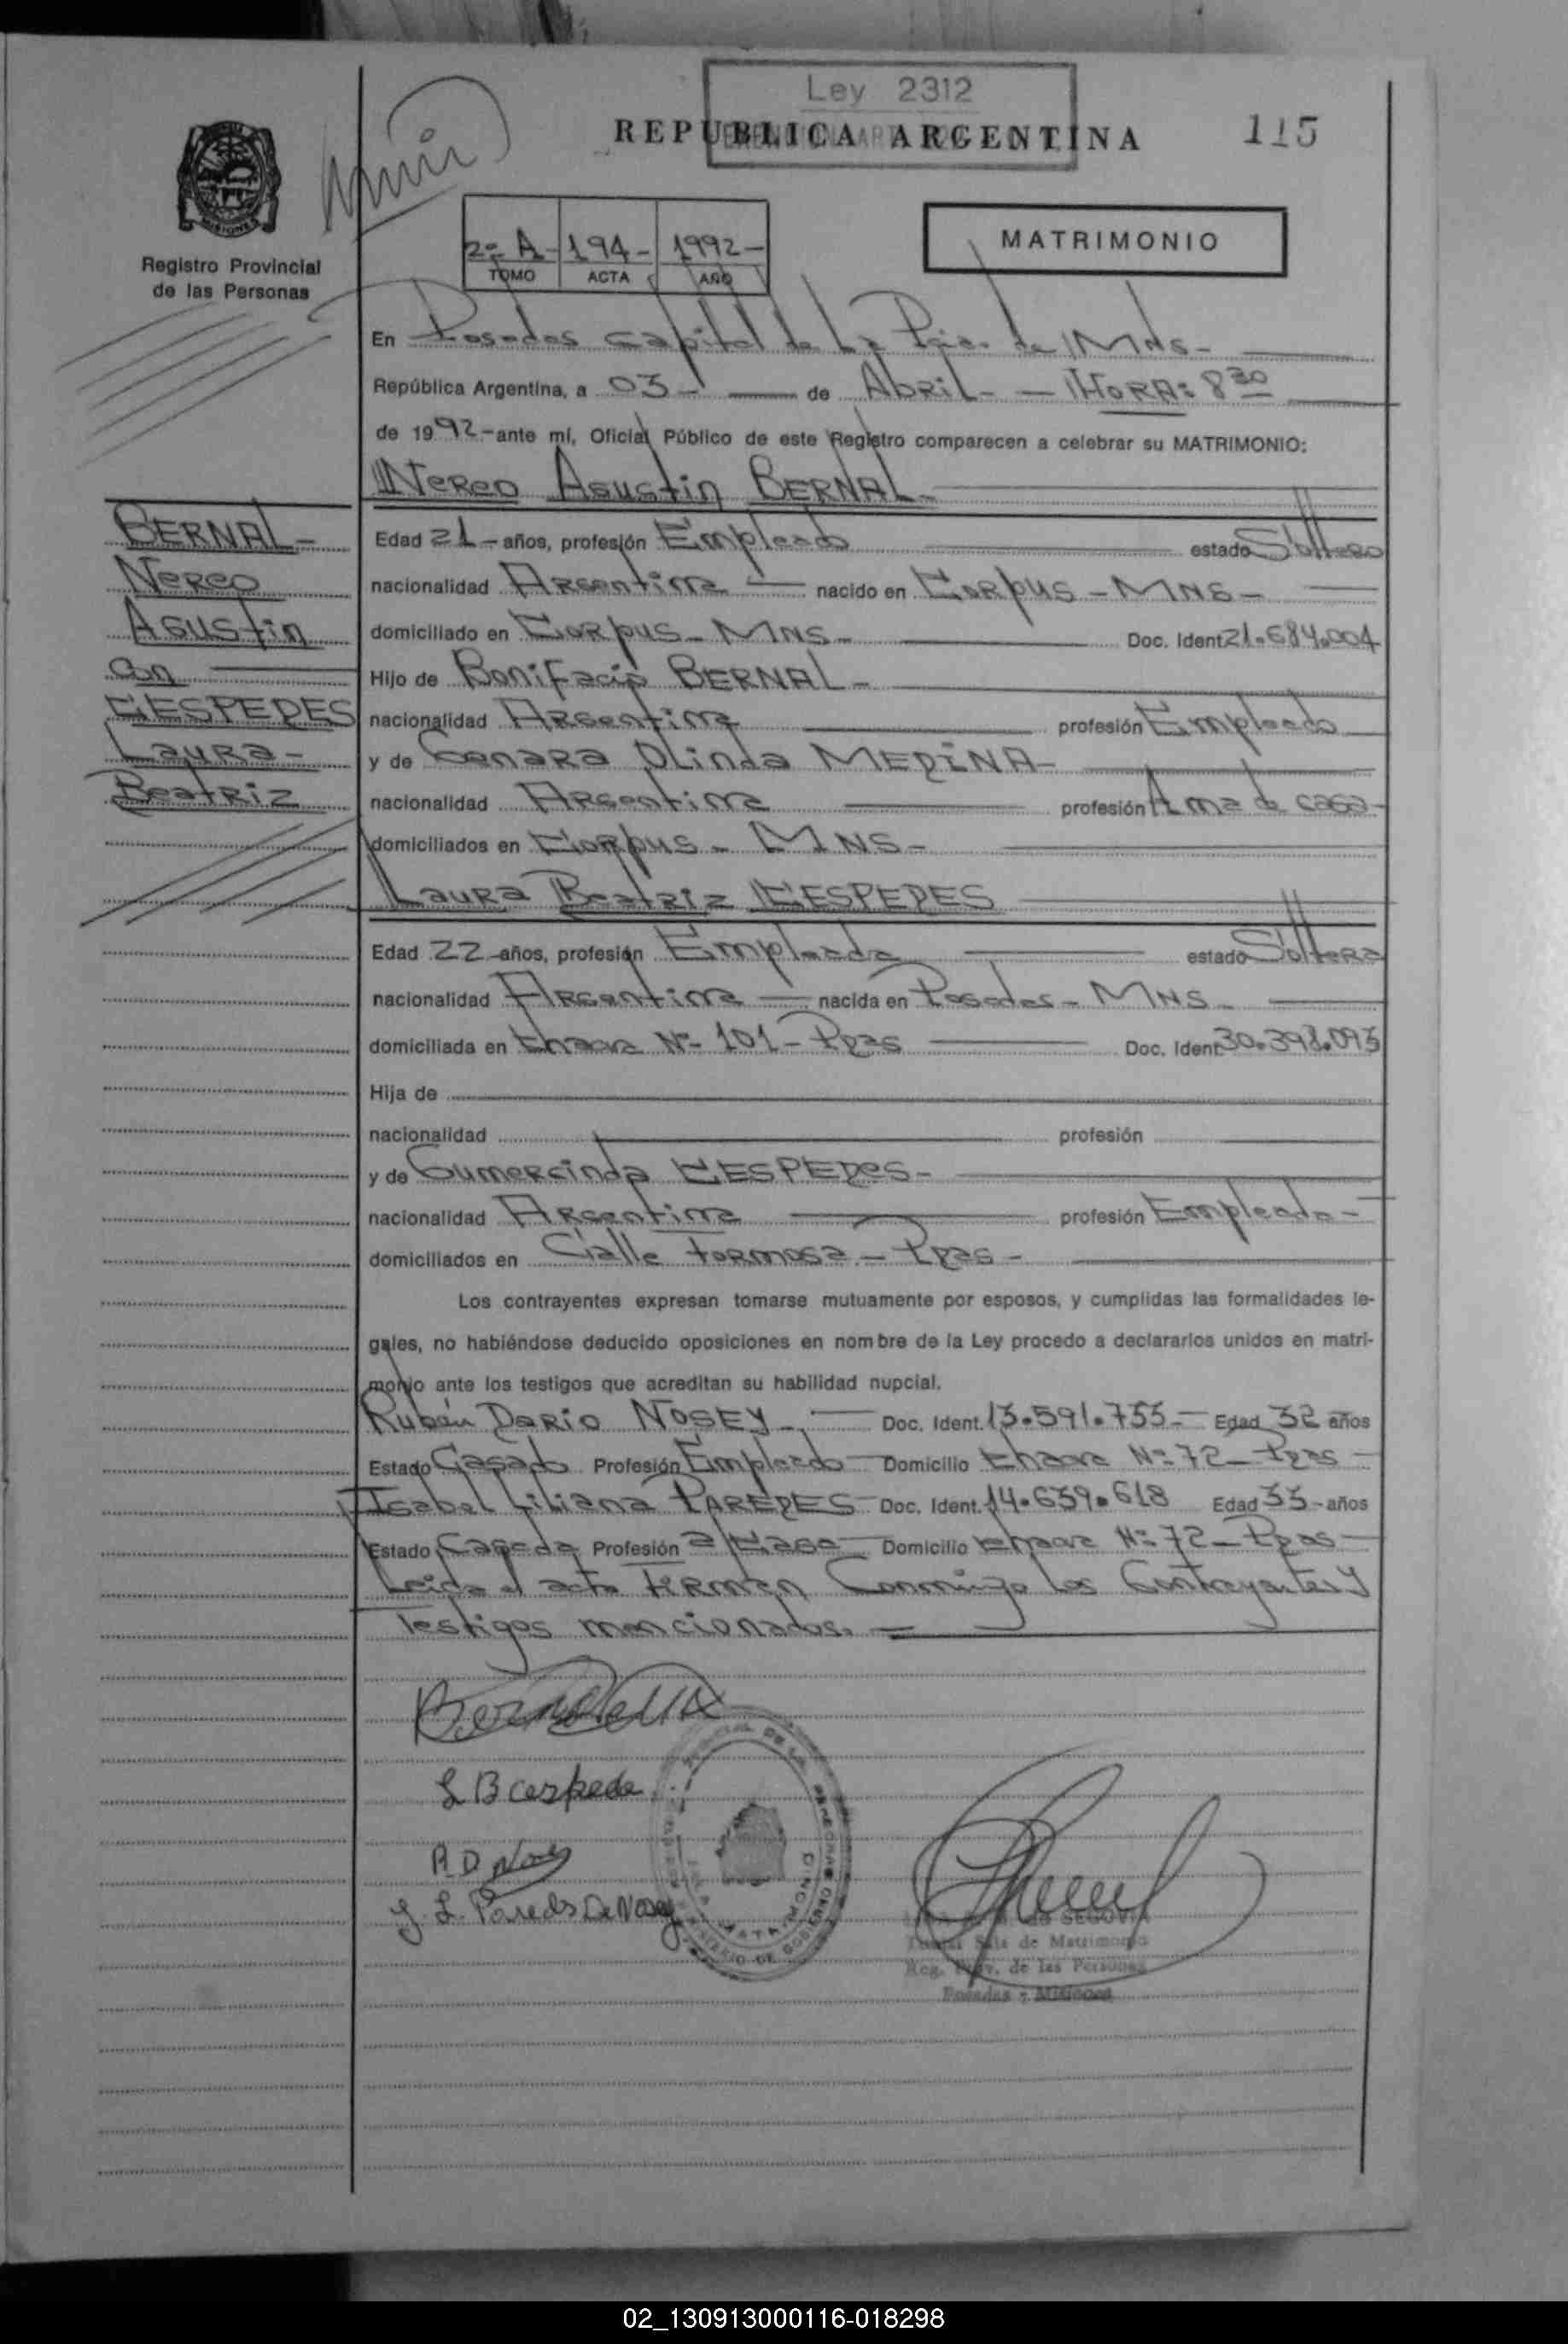 Ley 2312
REPUBLICA ARGENTINA
115
MISIONES
Registro Provincial
de las Personas
2º A - 194 - 1992 -
TOMO ACTA AÑO
MATRIMONIO
En Posadas capital de La Pcia. de Mns -
República Argentina, a 03 - de Abril - HORA: 8 30
de 1992 - ante mí, Oficial Público de este Registro comparecen a celebrar su MATRIMONIO:
Nereo Agustin BERNAL -
BERNAL -
Nereo
Agustin
con
CESPEDES
Laura -
Beatriz
Edad 21 - años, profesión Empleado estado Soltero
nacionalidad Argentina nacido en Corpus - MNS -
domiciliado en Corpus - MNS - Doc. Ident 21.684.004
Hijo de Bonifacio BERNAL -
nacionalidad Argentina profesión Empleado
y de Genara Olinda MEDINA -
nacionalidad Argentina profesión Ama de casa -
domiciliados en Corpus - MNS -
Laura Beatriz CESPEDES
Edad 22 - años, profesión Empleada estado Soltera
nacionalidad Argentina nacida en Posadas - MNS -
domiciliada en Chacra Nº 101 - Pdas Doc. Ident 30.398.093
Hija de
nacionalidad profesión
y de Gumercinda CESPEDES -
nacionalidad Argentina profesión Empleada -
domiciliados en Calle Formosa - Pdas -
Los contrayentes expresan tomarse mutuamente por esposos, y cumplidas las formalidades le-
gales, no habiéndose deducido oposiciones en nombre de la Ley procedo a declararlos unidos en matri-
monio ante los testigos que acreditan su habilidad nupcial.
Rubén Dario NOSEY - Doc. Ident. 13.591.755 - Edad 32 años
Estado Casado Profesión Empleado Domicilio Chacra Nº 72 - Pdas -
Isabel Liliana PAREDES - Doc. Ident. 14.639.618 Edad 33 - años
Estado Casada Profesión a/casa Domicilio Chacra Nº 72 - Pdas -
Leida el acta Firman Conmigo los Contrayentes y
Testigos mencionados. -
L B cespede
R. D. Nosey
I. L. Paredes De Nosey
SEGOVIA
Titular Sala de Matrimonio
Reg. Prov. de las Personas
Posadas - Misiones
02_130913000116-018298